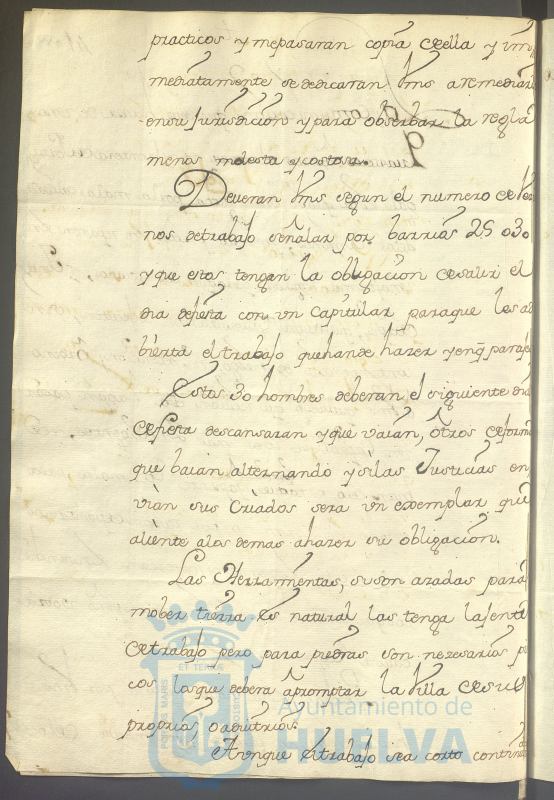 practicos y mepasaran copia de ella y im
mediatamente se dedicaran Vms a remediarl
en su Jurisdicion y para observar la regla
menos molesta y costosa.
Deveran Vms segun el numero de Vezi
nos detrabajo señalar por barrias 25 o 30
y que estos tengan la obligacion de salir el
dia de fiesta con un Capitular paraque les ad
bierta el trabajo quehande hazer y enq paraje
Estos 30 hombres deberan el siguiente dia
de fiesta descansaran y que vaian otros de forma
que baian alternando y si las Justicias en
vian sus Criados sera un exemplar que
aliente alos demas ahazer su obligacion.
Las Herramientas, su son azadas para
mober tierra es natural las tenga la jente
de trabajo pero para piedras son nezesarios pi
cos lo que debera apromptar la Villa de sus
proprios o arbitrios.
Aunque el trabajo sea corto continua
Ayuntamiento de
HUELVA